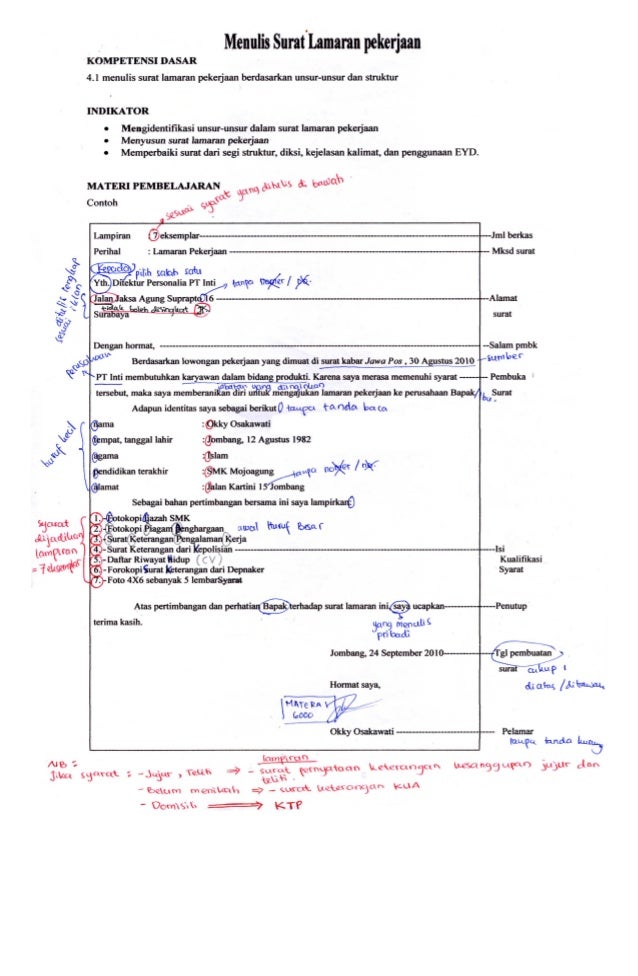 Menulis Surat Lamaran pekerjaan
KOMPETENSI DASAR
4.1 menulis surat lamaran pekerjaan berdasarkan unsur-unsur dan struktur
INDIKATOR
• Mengidentifikasi unsur-unsur dalam surat lamaran pekerjaan
• Menyusun surat lamaran pekerjaan
• Memperbaiki surat dari segi struktur, diksi, kejelasan kalimat, dan penggunaan EYD.
MATERI PEMBELAJARAN
sesuai syarat yang ditulis di bawah
Contoh
Lampiran : 7 eksemplar Jml berkas
Perihal : Lamaran Pekerjaan Mksd surat
Kepada pilih salah satu
Yth. Direktur Personalia PT Inti tanpa
ditulis lengkap sesuai iklan
Jalan Jaksa Agung Suprapto 16 Alamat
tidak boleh disingkat Jl.
Surabaya surat
Dengan hormat, Salam pmbk
Berdasarkan lowongan pekerjaan yang dimuat di surat kabar Jawa Pos , 30 Agustus 2010 sumber
perusahaan
PT Inti membutuhkan karyawan dalam bidang produkti. Karena saya merasa memenuhi syarat Pembuka
jabatan yang diinginkan
tersebut, maka saya memberanikan diri untuk mengajukan lamaran pekerjaan ke perusahaan Bapak/bu. Surat
Adapun identitas saya sebagai berikut tanpa tanda baca
huruf kecil
nama : Okky Osakawati
tempat, tanggal lahir : Jombang, 12 Agustus 1982
agama : Islam
pendidikan terakhir : SMK Mojoagung
tanpa nomer / no.
alamat : Jalan Kartini 15 Jombang
Sebagai bahan pertimbangan bersama ini saya lampirkan:
syarat dijadikan lampiran = 7 eksemplar
1. Fotokopi Ijazah SMK
2. Fotokopi Piagam Penghargaan awal Huruf Besar
3. Surat Keterangan Pengalaman Kerja
4. Surat Keterangan dari Kepolisian Isi
5. Daftar Riwayat Hidup (CV) Kualifikasi
6. Forokopi Surat Keterangan dari Depnaker Syarat
7. Foto 4X6 sebanyak 5 lembarSyarat
Atas pertimbangan dan perhatian Bapak terhadap surat lamaran ini, saya ucapkan Penutup
terima kasih.
yang menulis pribadi
Jombang, 24 September 2010 Tgl pembuatan
surat cukup 1
diatas / dibawah
Hormat saya,
MATERAI
6000
Okky Osakawati Pelamar
tanpa tanda kurung
NB :
lampiran
Jika syarat : - Jujur, Teliti ⇒ - surat pernyataan keterangan kesanggupan jujur dan teliti.
- Belum menikah ⇒ - surat keterangan KUA
- Domisili ⇒ KTP